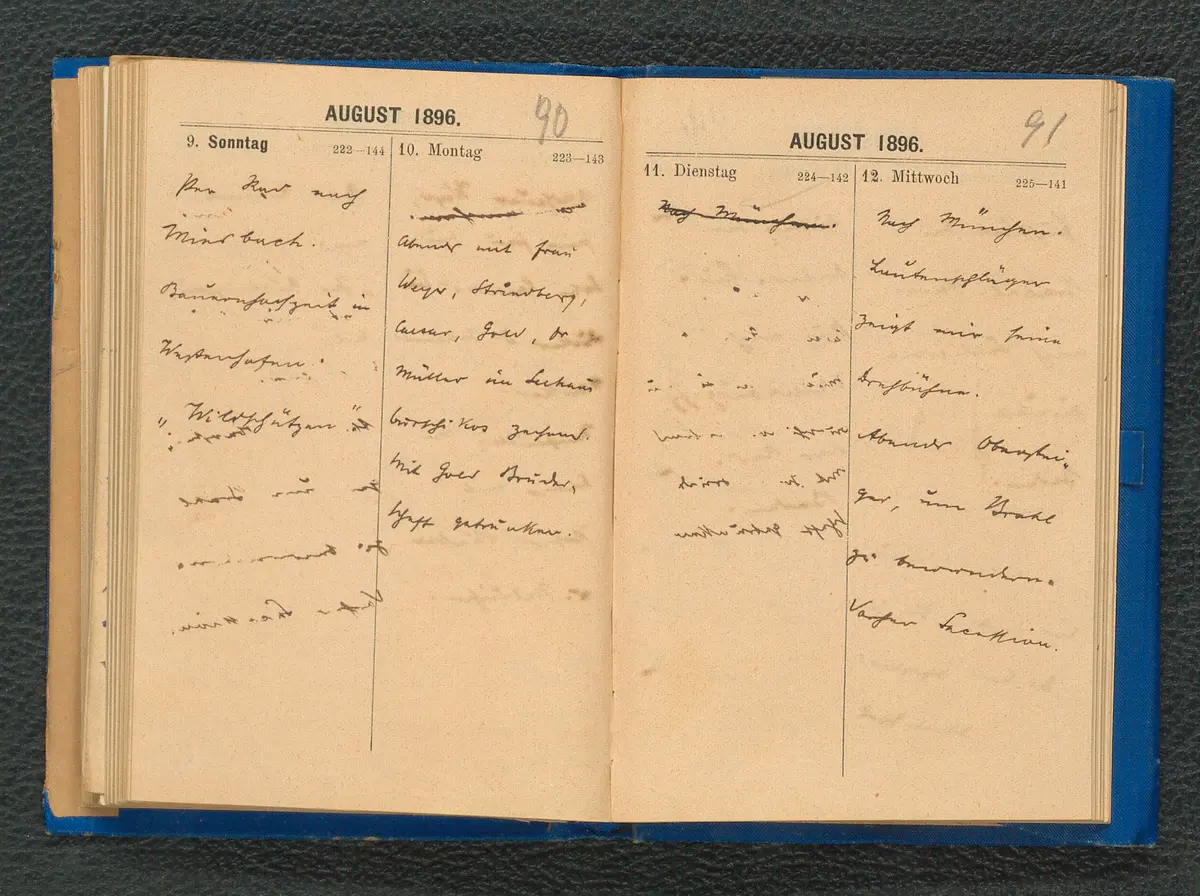 AUGUST 1896.
90
9. Sonntag
222—144
Per Rad nach
Miesbach.
Bauernhochzeit in
Westenhofen.
„Wildschützen“.
10. Montag
223—143
Abends mit Frau
Weyr, Strindberg,
Caesar, Gold, Dr
Müller im Seehaus
burschikos zechend.
Mit Gold Bruder,
schaft getrunken.
AUGUST 1896.
91
11. Dienstag
224—142
Nach München.
12. Mittwoch
225—141
Nach München.
Lautenschläger
zeigt mir seine
Drehbühne.
Abends Oberstei„
ger, um Brakl
zu bewundern.
Vorher Secession.